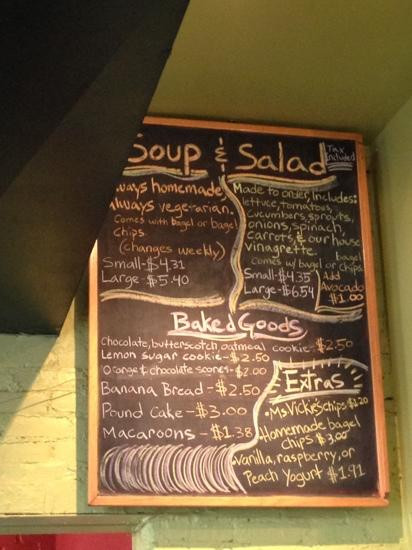 Soup & Salad
Tax
included
always homemade,
always vegetarian.
Comes with bagel or bagel
chips.
(changes weekly)
Small-$4.31
Large-$5.40
Made to order, includes:
lettuce, tomatoes,
cucumbers, sprouts,
onions, spinach,
carrots, & our house
vinagrette.
Comes w/ bagel or bagel chips.
Small-$4.35
Large-$6.54
Add
Avocado
$1.00
Baked Goods
Chocolate, butterscotch, oatmeal cookie-$2.50
Lemon sugar cookie-$2.50
Orange & chocolate scones-$2.00
Banana Bread-$2.50
Pound Cake-$3.00
Macaroons-$1.38
Extras
•Ms Vickie's chips $1.20
•Homemade bagel
chips $3.00
•Vanilla, raspberry, or
Peach Yogurt $1.91